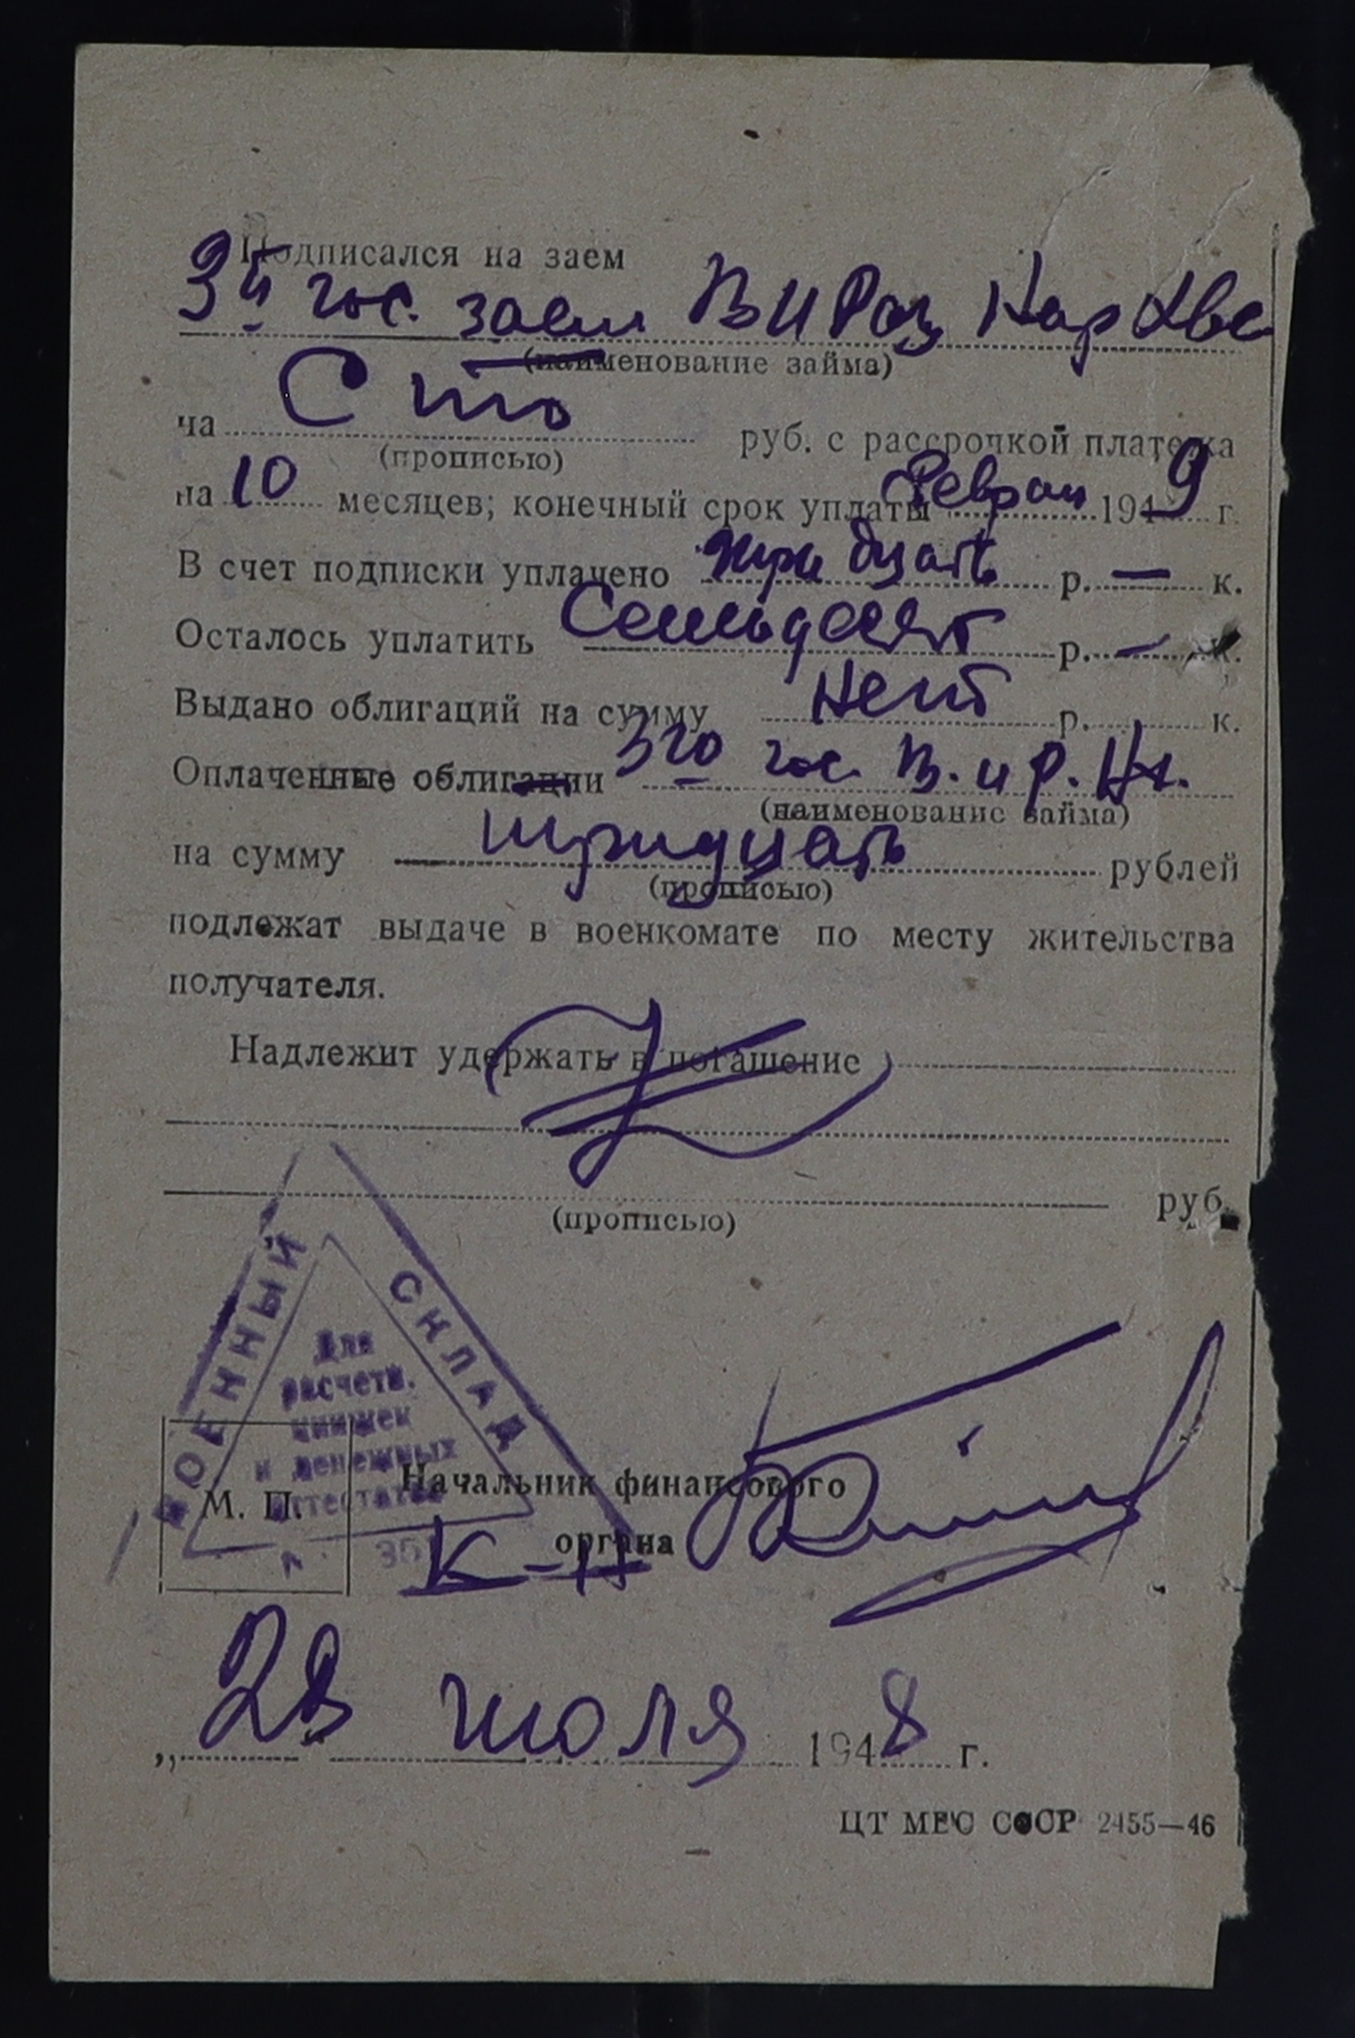 Подписался на заем
3й гос. заем В и Раз Нар Хва
(наименование займа)
на Сто руб. с рассрочкой платежа
(прописью)
на 10 месяцев; конечный срок уплаты Феврал 1949 г.
В счет подписки уплачено тридцать р. — к.
Осталось уплатить Семьдесят р. — к.
Выдано облигаций на сумму Нет р. к.
Оплаченные облигации 3го гос. В. и Р. Нх.
(наименование займа)
на сумму тридцать рублей
(прописью)
подлежат выдаче в военкомате по месту жительства
получателя.
Надлежит удержать в погашение
руб.
(прописью)
ВОЕННЫЙ СКЛАД
Для
расчетн.
книжек
и денежных
аттестатов
М. П.
Начальник финансового
органа
„28 июля 1948 г.
ЦТ МВС СССР 2455—46